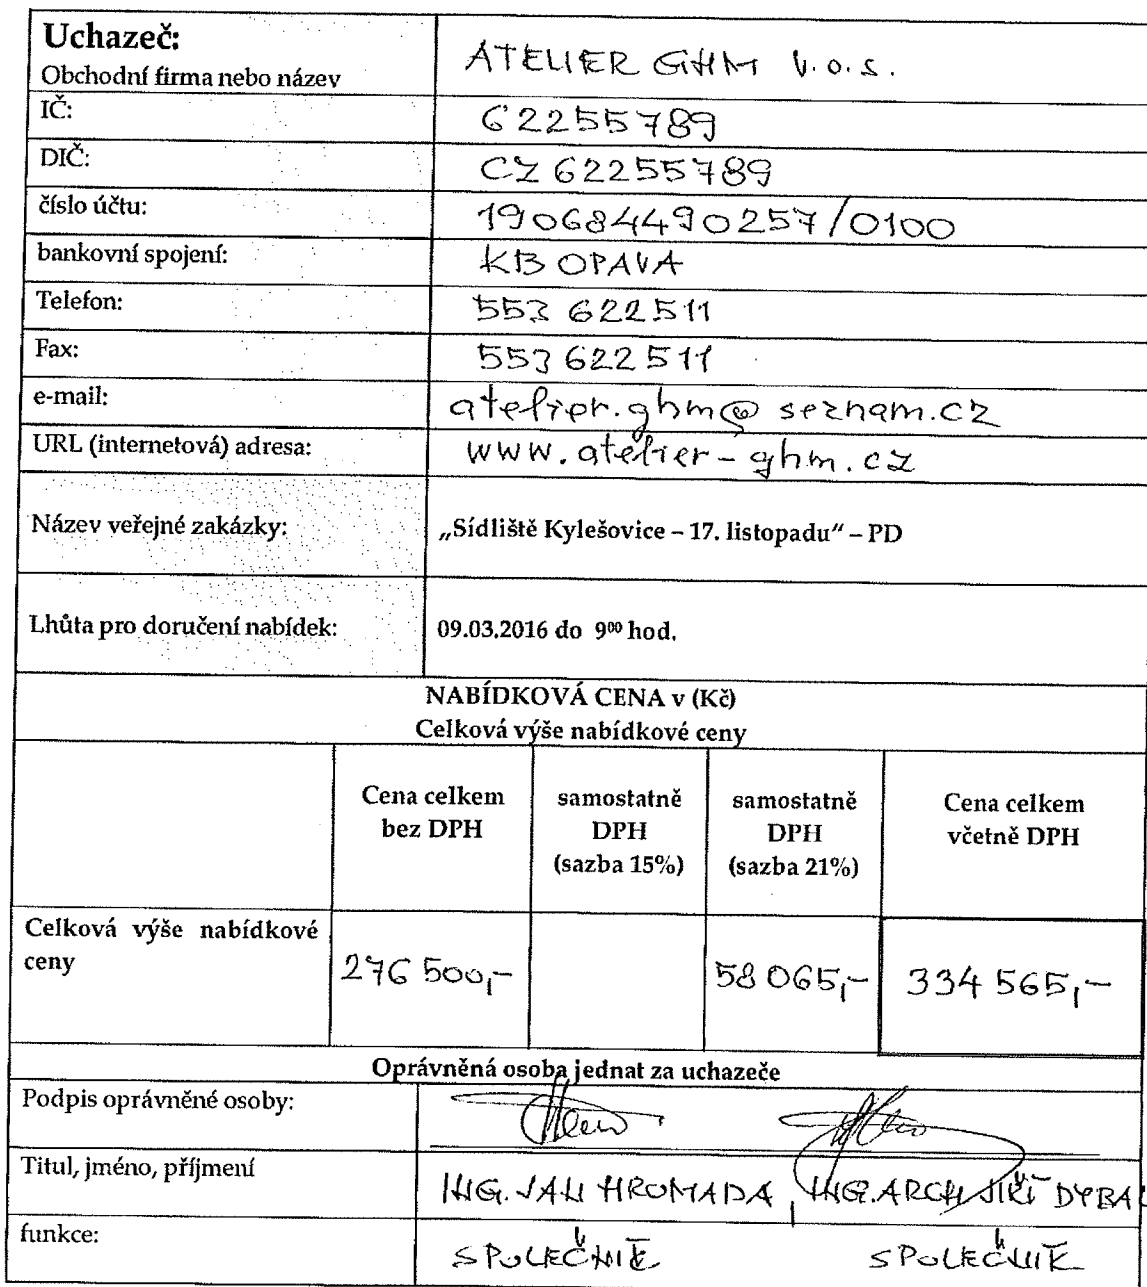 Uchazeč:
Obchodní firma nebo název ATELIER GHM v.o.s.
IČ: 62255789
DIČ: CZ 62255789
číslo účtu: 190684490257/0100
bankovní spojení: KB OPAVA
Telefon: 553 622511
Fax: 553 622511
e-mail: atelier.ghm@seznam.cz
URL (internetová) adresa: www.atelier-ghm.cz
Název veřejné zakázky: „Sídliště Kylešovice – 17. listopadu“ – PD
Lhůta pro doručení nabídek: 09.03.2016 do 9⁰⁰ hod.
NABÍDKOVÁ CENA v (Kč)
Celková výše nabídkové ceny
Cena celkem bez DPH
samostatně DPH (sazba 15%)
samostatně DPH (sazba 21%)
Cena celkem včetně DPH
Celková výše nabídkové
ceny 276 500,- 58 065,- 334 565,-
Oprávněná osoba jednat za uchazeče
Podpis oprávněné osoby:
Titul, jméno, příjmení ING. JAN HROMADA, ING. ARCH JIŘÍ
funkce: SPOLEČNÍK SPOLEČNÍK